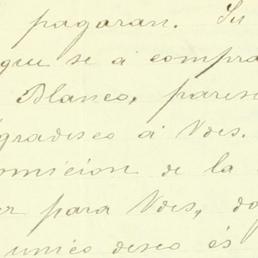 pagaran. Su
que se á compra
Blanco, pares
gradesco á Vdes.
omicion de la
er para Vdes, do
unico deseo és